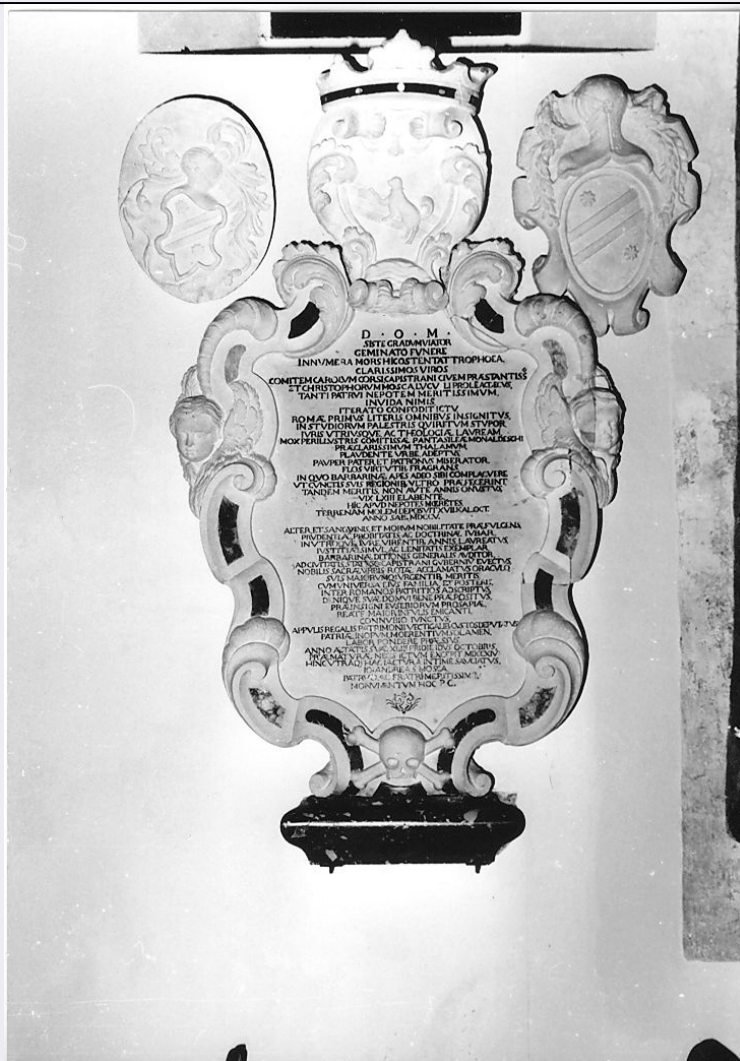 D · O · M ·
SISTE GRADVM VIATOR
GEMINATO FVNERE
INNVMERA MORS HIC OSTENTAT TROPHOEA,
CLARISSIMOS VIROS
COMITEM CAROLVM CORSI CAPISTRANI CIVEM PRÆSTANTISS
ET CHRISTOPHORVM MOSCA
TANTI PATRVI NEPOTEM MERITISSIMVM,
INVIDA NIMIS
ITERATO CONFODIT ICTV
ROMÆ PRIMVS LITERIS OMNIBVS INSIGNITVS,
IN STVDIORVM PALESTRIS QVIRITVM STVPOR
IVRIS VTRIVSQVE AC THEOLOGIÆ LAVREAM
MOX PERILLVSTRIS COMITISSÆ PANTASILEÆ MONALDESCHI
PRÆCLARISSIMVM THALAMVM
PLAVDENTE VRBE ADEPTVS
PAVPER PATER ET PATRONVS MISERATOR
FLOS VIRTVTIB FRAGRANS
IN QVO BARBARINÆ APES ADEO SIBI COMPLACVERE
VT CVNCTIS SVIS REGIONIB VLTRO PRÆFECERINT
TANDEM MERITIS, NON AVTE ANNIS ONVSTVS
VIX LXIII ELABENTE
HIC APVD NEPOTES MŒRETES
TERRENAM MOLEM DEPOSVIT XVII KAL OCT
ANNO SAL MDCLV
ALTER ET SANGVINIS ET MORVM NOBILITATE PRÆFVLGENS
PRVDENTIÆ PROBITATIS AC DOCTRINÆ IVBAR
IN VTROQVE IVRE VIRENTIB ANNIS LAVREATVS
IVSTITIÆ SIMVL AC LENITATIS EXEMPLAR
BARBARINÆ DITIONIS GENERALIS AVDITOR
AD CIVITATIS CAPISTRANI GVBERNIV EVECTVS
NOBILIS SACRÆ VRBIS ROTÆ ACCLAMATVS ORACVLO
SVIS MAIORVMQ VRGENTIB MERITIS
CVM VNIVERSA EIVS FAMILIA, ET POSTERIS
INTER ROMANOS PATRITIOS ADSCRIPTVS
DENIQVE SVÆ DOMVI BENE PRÆPOSITVS
PRÆINSIGNI EVSEBIORVM PROSAPIÆ
REATE MAIOR INFVLIS EMICANTI
CONNVBIO IVNCTVS
REGALIS PATRIMONII VECTIGALIB CVSTOS DEPVTATVS
PATRIÆ INOPVM MOERENTIVM SOLAMEN
LABOR PONDERE PRÆSSVS
ANNO ÆTATIS SVÆ PRIDIE IDVS OCTOBRIS
HINC VTRAQ HAC IACTVRA INTIME SAVCIATVS
IO ANDREAS MOSCA
PATRVO AC FRATRI MERITISSIM
MONVMENTVM HOC P C